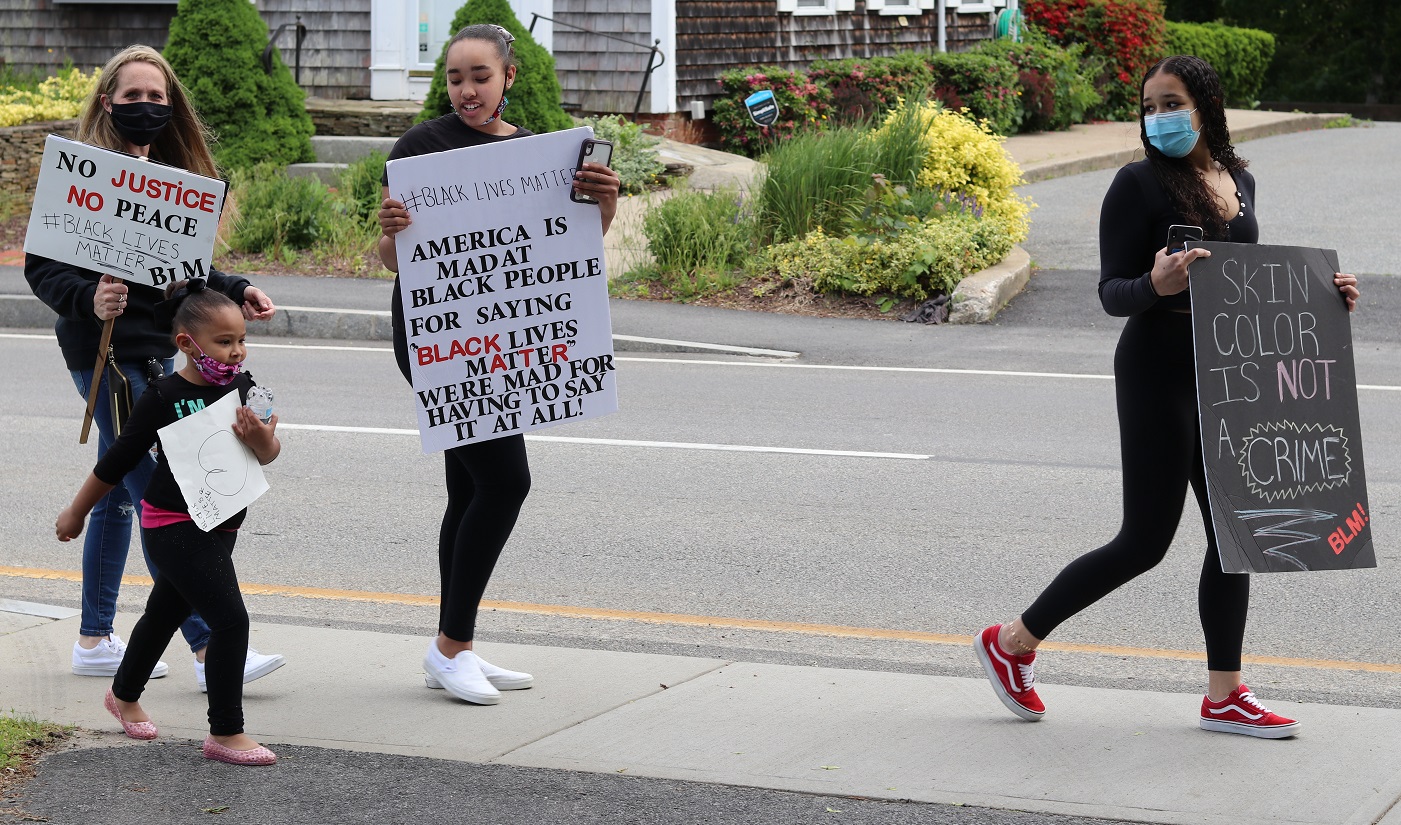 NO JUSTICE
NO PEACE
#BLACK LIVES
MATTER BLM
I'M
LIVES
MATTER
#BLACK LIVES MATTER
AMERICA IS
MAD AT
BLACK PEOPLE
FOR SAYING
"BLACK LIVES
MATTER"
WERE MAD FOR
HAVING TO SAY
IT AT ALL!
SKIN
COLOR
IS NOT
A CRIME
BLM!